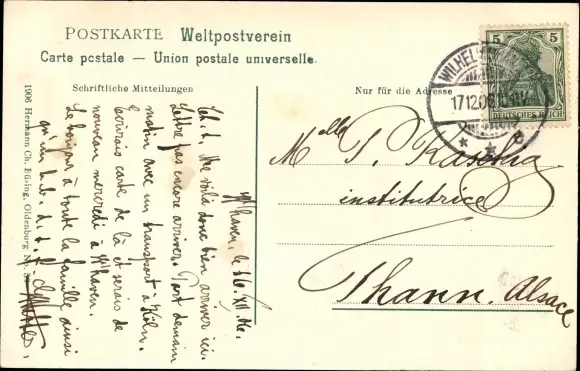 POSTKARTE Weltpostverein
Carte postale — Union postale universelle.
Schriftliche Mitteilungen
Nur für die Adresse
5 5
DEUTSCHES REICH
WILHEL
17.12.06
* * c
Mlle P. Raschig
institutrice
Thann. Alsace
W'haven, le 16. XII. 06.
Me voilà donc bien arrivé ici.
Lettre pas encore arrivée. Part demain
matin avec un transport à Köln.
Écrirais carte de là et serais de
nouveau mercredi à W'haven.
Le bonjour à toute la famille ainsi
qu'un
1906 Hermann Ch. Büsing, Oldenburg No.